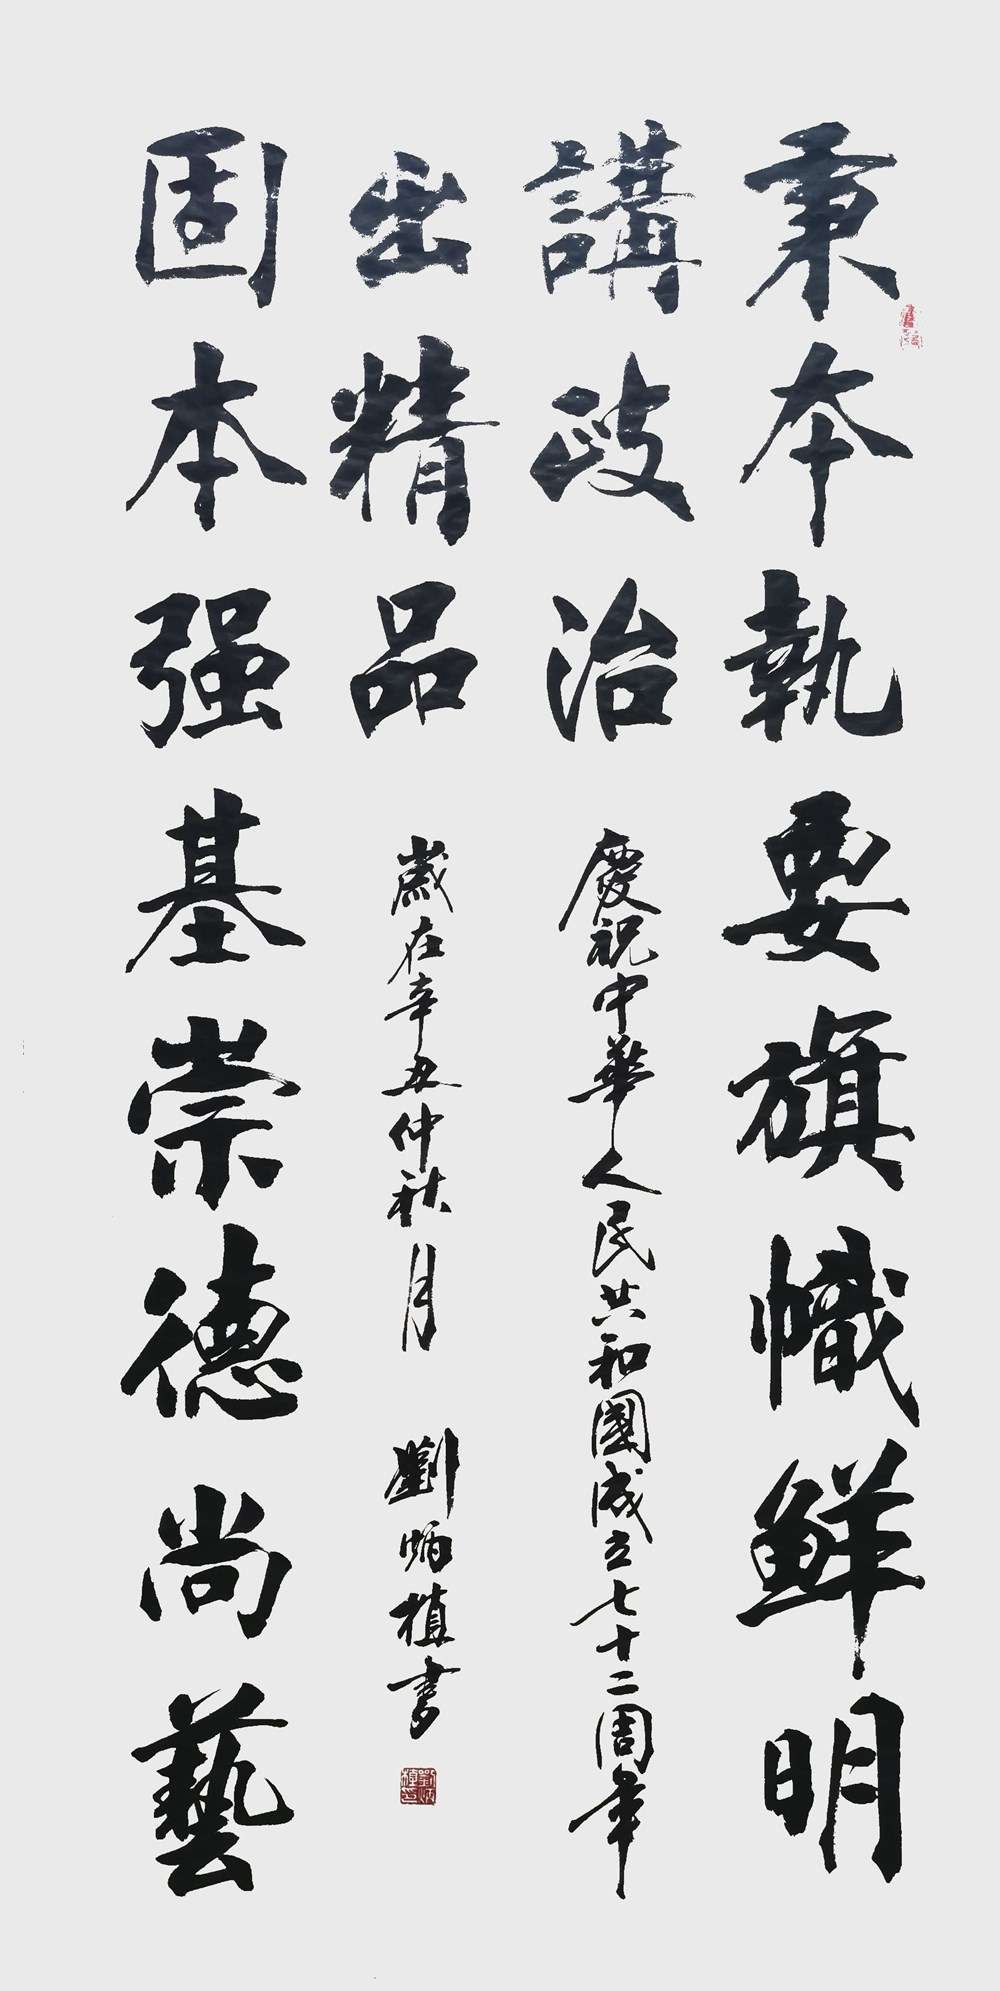 秉本執要旗幟鮮明
講政治
慶祝中華人民共和國成立七十二周年
固本强基崇德尚藝
出精品
歲在辛丑仲秋月 劉炳植書
劉炳植印